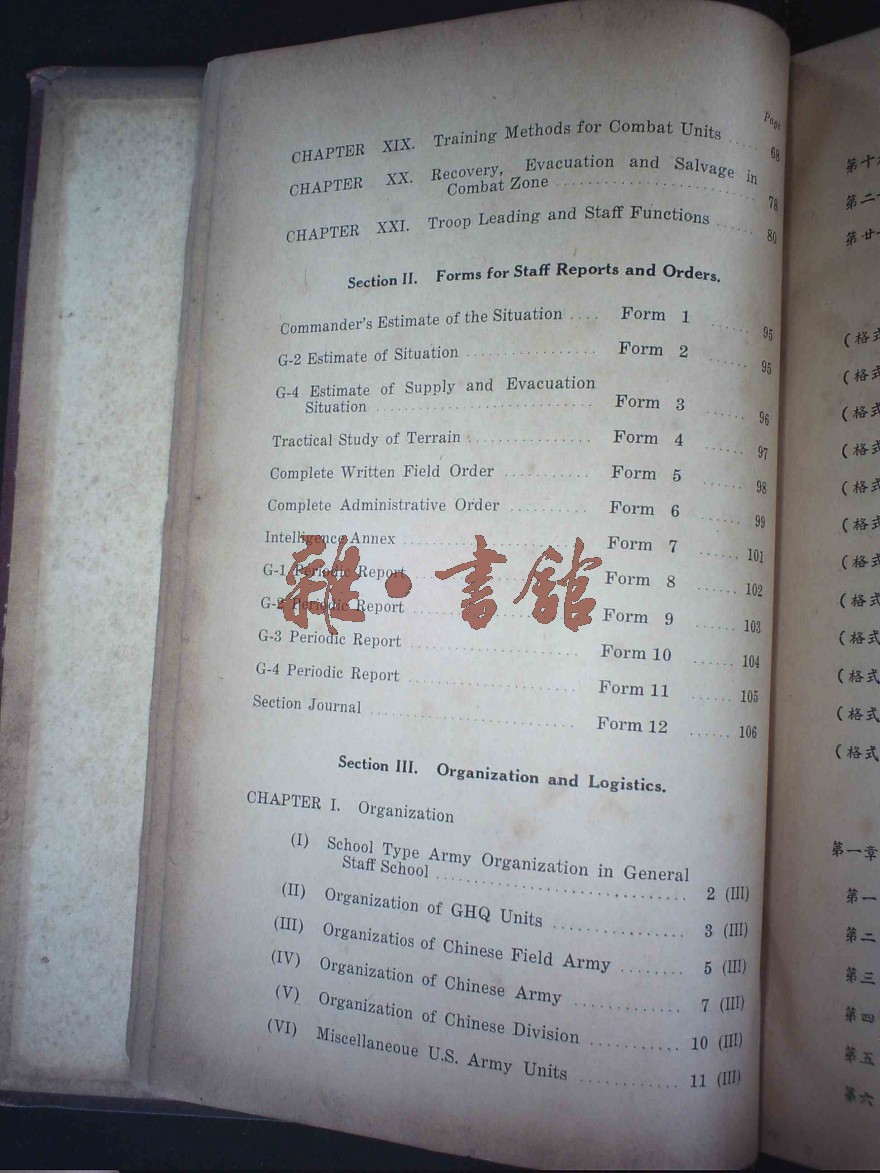 Page
CHAPTER XIX. Training Methods for Combat Units ..... 68
CHAPTER XX. Recovery, Evacuation and Salvage in
Combat Zone ..... 78
CHAPTER XXI. Troop Leading and Staff Functions ..... 80
Section II. Forms for Staff Reports and Orders.
Commander's Estimate of the Situation .... Form 1 ...... 95
G-2 Estimate of Situation ..... Form 2 ...... 95
G-4 Estimate of Supply and Evacuation
Situation ..... Form 3 ...... 96
Tractical Study of Terrain ..... Form 4 ...... 97
Complete Written Field Order ..... Form 5 ...... 98
Complete Administrative Order ..... Form 6 ...... 99
Intelligence Annex ..... Form 7 ...... 101
G-1 Periodic Report ..... Form 8 ...... 102
G-2 Periodic Report ..... Form 9 ...... 103
G-3 Periodic Report ..... Form 10 ...... 104
G-4 Periodic Report ..... Form 11 ...... 105
Section Journal ..... Form 12 ...... 106
雜·書館
Section III. Organization and Logistics.
CHAPTER I. Organization
(I) School Type Army Organization in General
Staff School ..... 2 (III)
(II) Organization of GHQ Units ..... 3 (III)
(III) Organizatios of Chinese Field Army ..... 5 (III)
(IV) Organization of Chinese Army ..... 7 (III)
(V) Organization of Chinese Division ..... 10 (III)
(VI) Miscellaneoue U.S. Army Units ..... 11 (III)
第十
第二十
第廿一
(格式
(格式
(格式
(格式
(格式
(格式
(格式
(格式
(格式
(格式
(格式
(格式
第一章
第一
第二
第三
第四
第五
第六